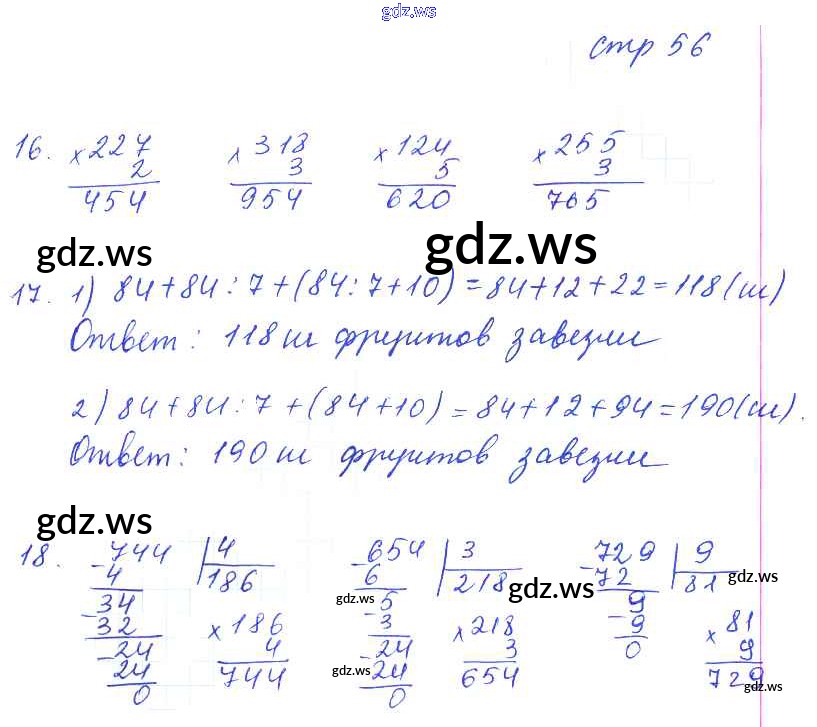 gdz.ws
стр 56
16. × 227 × 318 × 124 × 255
2 3 5 3
454 954 620 765
gdz.ws gdz.ws
17. 1) 84+84:7+(84:7+10)=84+12+22=118(ш)
Ответ: 118 ш фруктов завезли
2) 84+84:7+(84+10)=84+12+94=190(ш).
Ответ: 190 ш фруктов завезли
gdz.ws
18. - 744 | 4 - 654 | 3 - 729 | 9
4 186 6 218 72 81
gdz.ws gdz.ws gdz.ws
- 34 - 5 - 9
32 × 186 3 × 218 9 × 81
- 24 4 - 24 3 0 9
24 744 24 654 729
0 0
gdz.ws gdz.ws